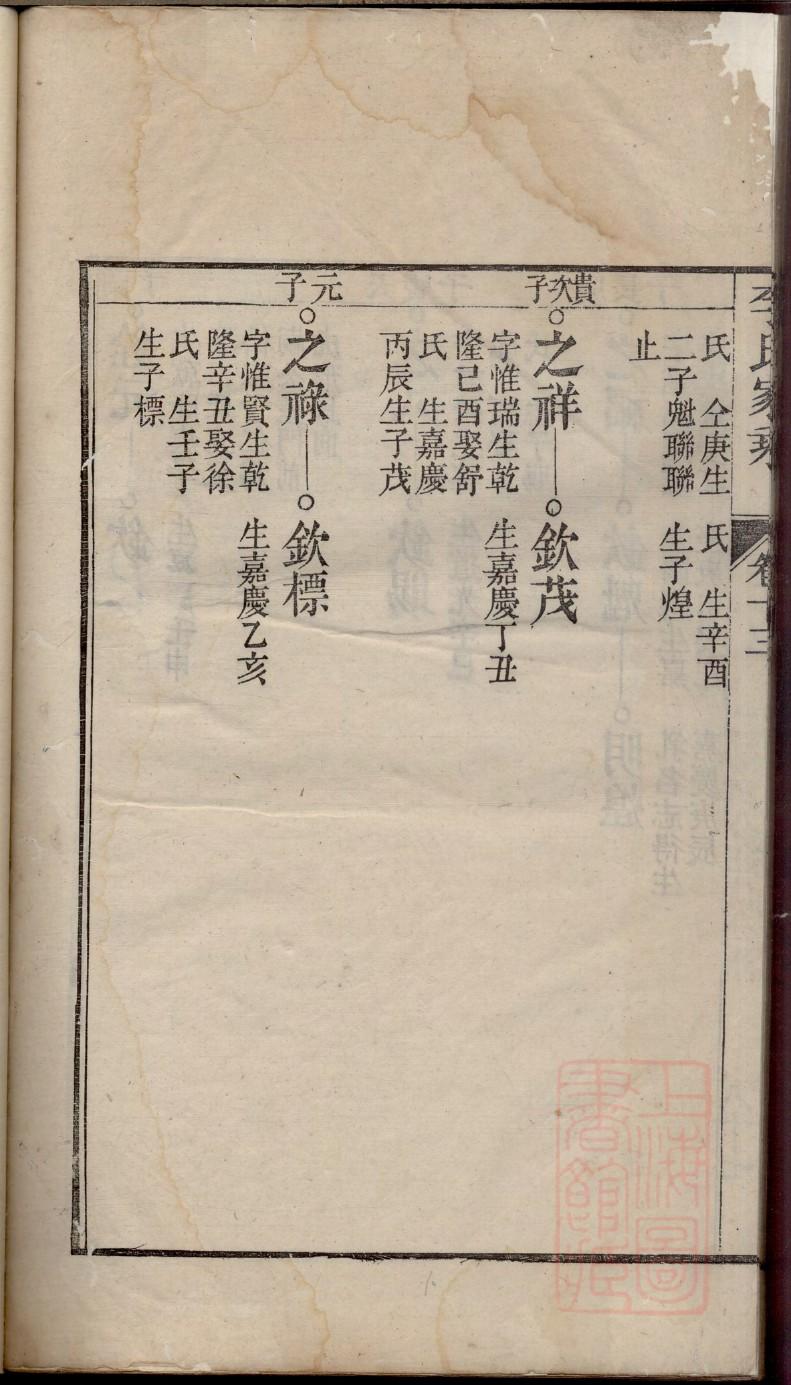 李氏家乘
卷十三
氏　仝庚生
二子魁聯聯
止
氏　生辛酉
生子煌
貴次子
之祥
字惟瑞生乾
隆己酉娶舒
氏　生嘉慶
丙辰生子茂
欽茂
生嘉慶丁丑
元子
之祿
字惟賢生乾
隆辛丑娶徐
氏　生壬子
生子標
欽標
生嘉慶乙亥
上海圖
書館藏